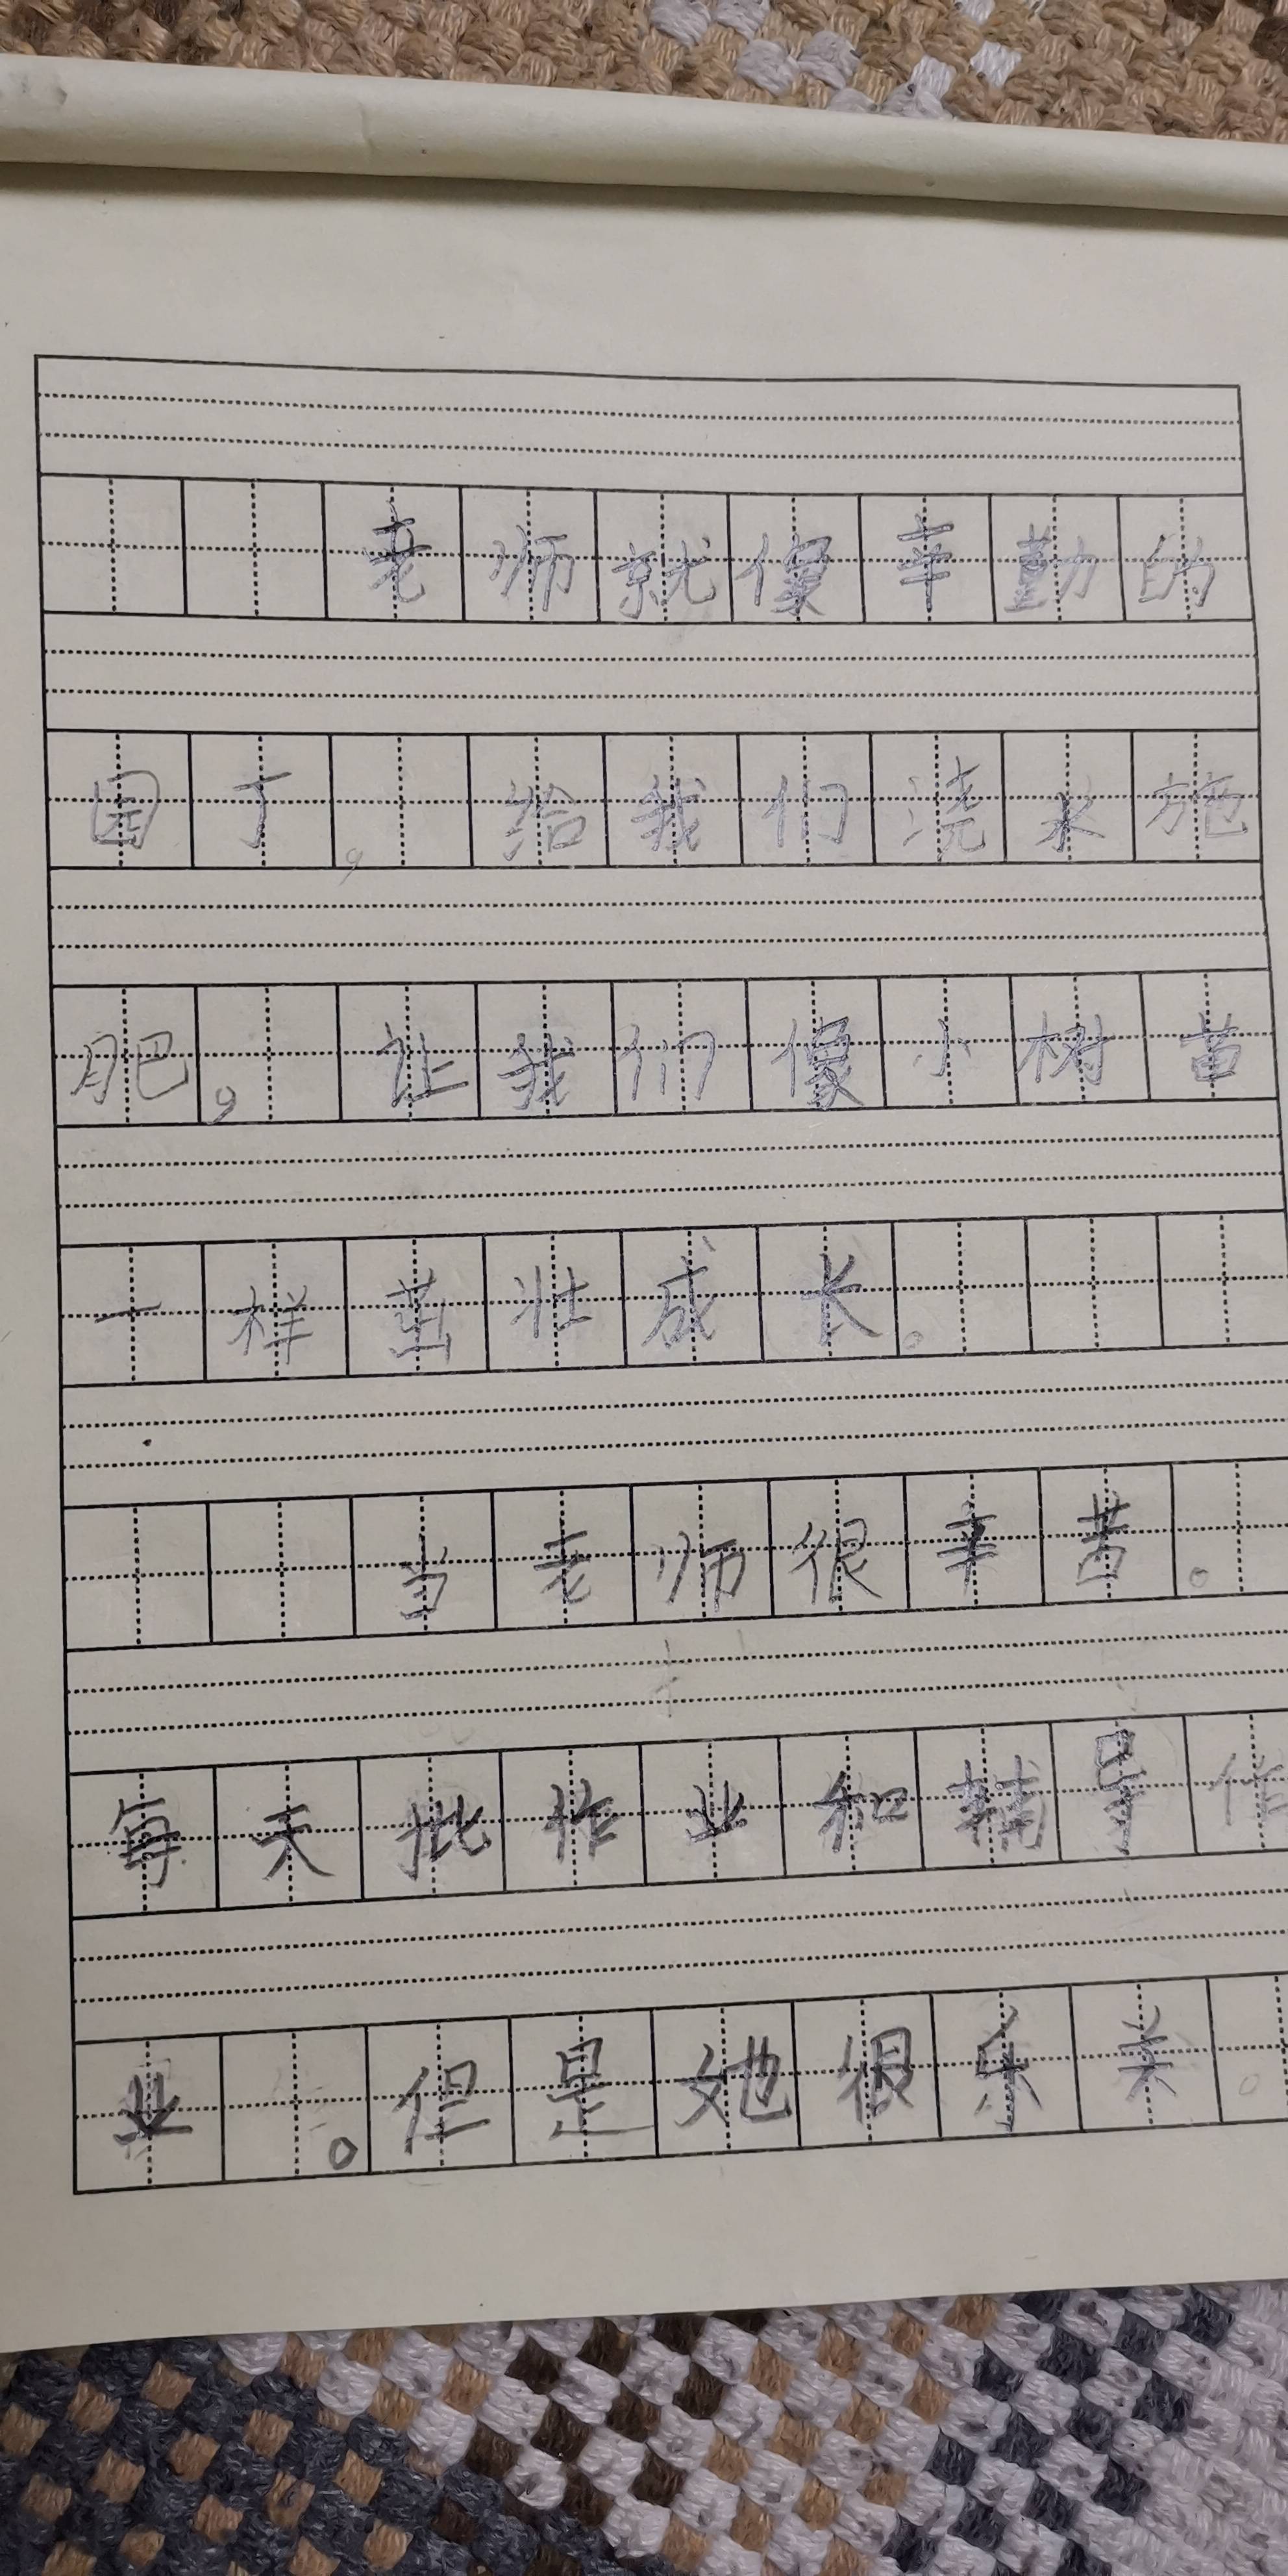 老师就像辛勤的
园丁，给我们浇水施
肥，让我们像小树苗
一样茁壮成长。
当老师很辛苦。
每天批作业和辅导作
业。但是她很乐关。